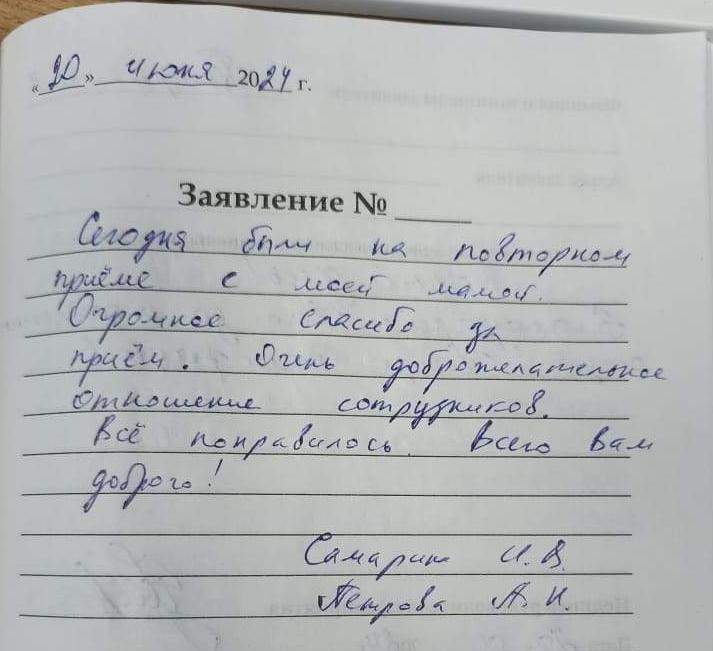 «20» июня 2024 г.
Заявление № ____
Сегодня были на повторном
приёме с моей мамой.
Огромное спасибо за
приём. Очень доброжелательное
отношение сотрудников.
Всё понравилось. Всего вам
доброго!
Самарин И.В.
Петрова А.Н.